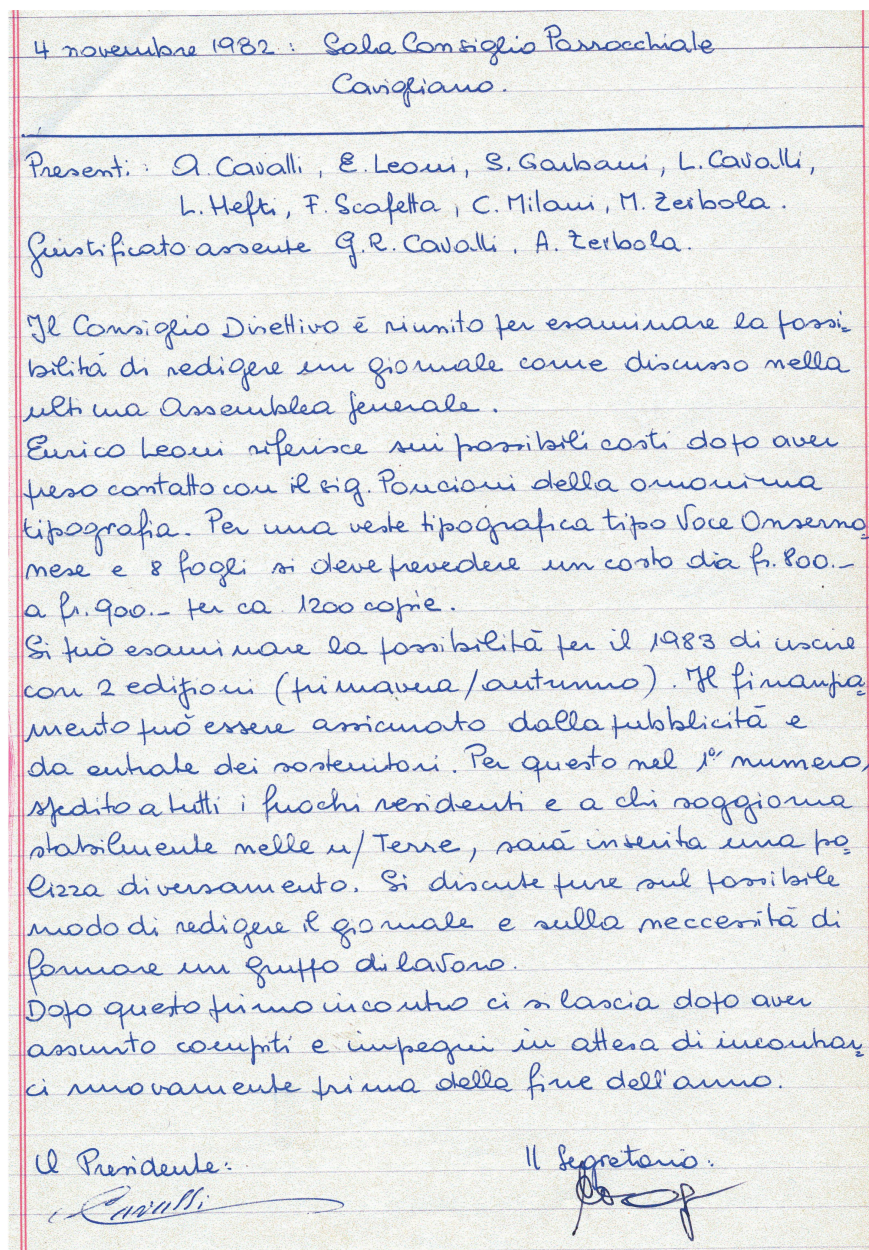 4 novembre 1982 : Sala Consiglio Parrocchiale
Cavigliano.
Presenti : A. Cavalli, E. Leoni, S. Garbani, L. Cavalli,
L. Hefti, F. Scafetta, C. Milani, M. Zerbola.
Giustificato assente G.R. Cavalli, A. Zerbola.
Il Consiglio Direttivo è riunito per esaminare la possi=
bilità di redigere un giornale come discusso nella
ultima Assemblea generale.
Enrico Leoni riferisce sui possibili costi dopo aver
preso contatto con il sig. Poncioni della omonima
tipografia. Per una veste tipografica tipo Voce Onserno=
nese e 8 fogli si deve prevedere un costo dia fr. 800.-
a fr. 900.- per ca 1200 copie.
Si può esaminare la possibilità per il 1983 di uscire
con 2 edizioni (primavera/autunno). Il finanzia=
mento può essere assicurato dalla pubblicità e
da entrate dei sostenitori. Per questo nel 1° numero,
spedito a tutti i fuochi residenti e a chi soggiorna
stabilmente nelle n/ Terre, sarà inserita una po=
lizza di versamento. Si discute pure sul possibile
modo di redigere il giornale e sulla neccessità di
formare un gruppo di lavoro.
Dopo questo primo incontro ci si lascia dopo aver
assunto compiti e impegni in attesa di incontrar=
ci nuovamente prima della fine dell'anno.
Il Presidente:
Il Segretario:
Cavalli